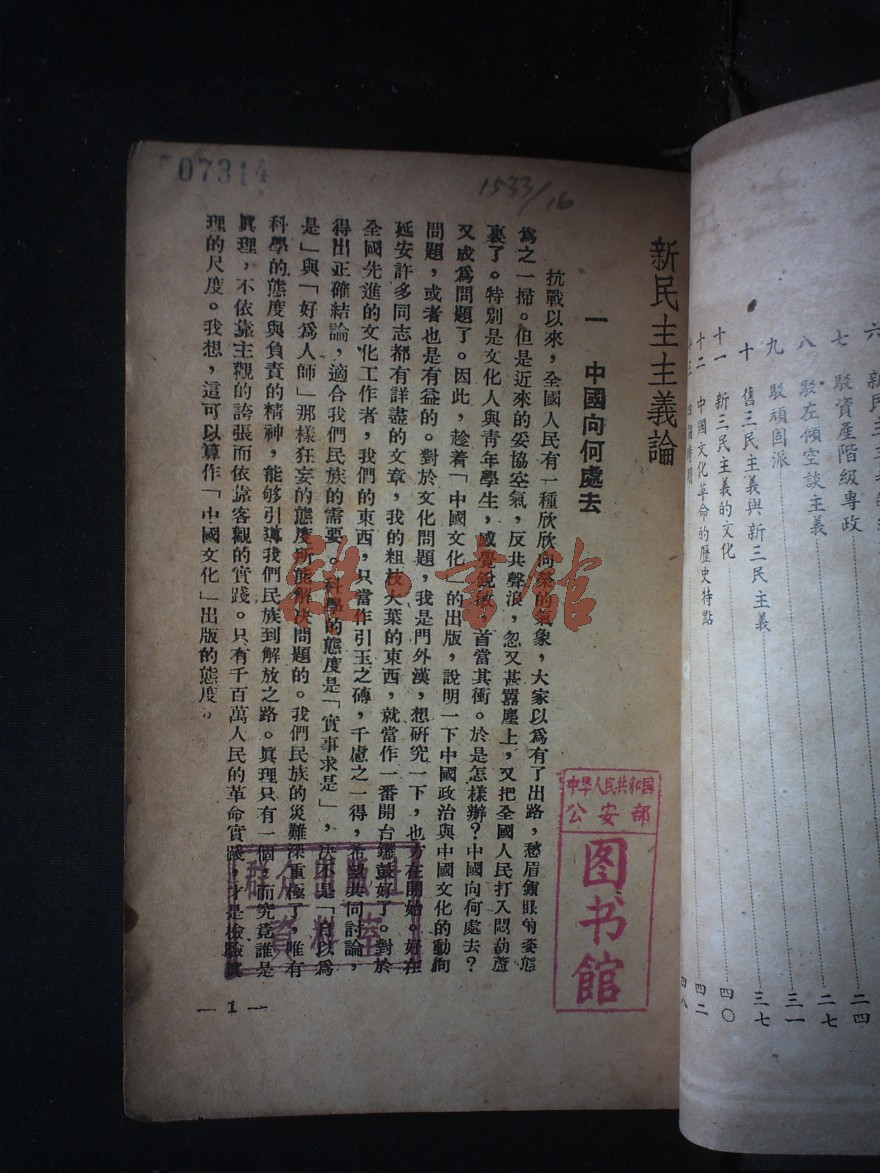 07314
1533/16
新民主主義論
一 中國向何處去
抗戰以來，全國人民有一種欣欣向榮的氣象，大家以爲有了出路，愁眉鎖眼的姿態
爲之一掃。但是近來的妥協空氣，反共聲浪，忽又甚囂塵上，又把全國人民打入悶葫蘆
裏了。特別是文化人與青年學生，感覺銳敏，首當其衝。於是怎樣辦？中國向何處去？
又成爲問題了。因此，趁着「中國文化」的出版，說明一下中國政治與中國文化的動向
問題，或者也是有益的。對於文化問題，我是門外漢，想研究一下，也方在開始。好在
延安許多同志都有詳盡的文章，我的粗枝大葉的東西，就當作一番開台鑼鼓好了。對於
全國先進的文化工作者，我們的東西，只當作引玉之磚，千慮之一得，希望共同討論，
得出正確結論，適合我們民族的需要。科學的態度是「實事求是」，決不是「自以爲
是」與「好爲人師」那樣狂妄的態度所能解决問題的。我們民族的災難深重極了，唯有
科學的態度與負責的精神，能够引導我們民族到解放之路。眞理只有一個，而究竟誰是
眞理，不依靠主觀的誇張而依靠客觀的實踐。只有千百萬人民的革命實踐，才是檢驗眞
理的尺度。我想，這可以算作「中國文化」出版的態度。
— 1 —
中华人民共和国
公安部
图书馆
群众出版社
資料室
六 新民主主義
七 駁資產階級專政 二四
八 駁左傾空談主義 二七
九 駁頑固派 三一
十 舊三民主義與新三民主義 三七
十一 新三民主義的文化 四〇
十二 中國文化革命的歷史特點 四二
十三 四個時期 四八